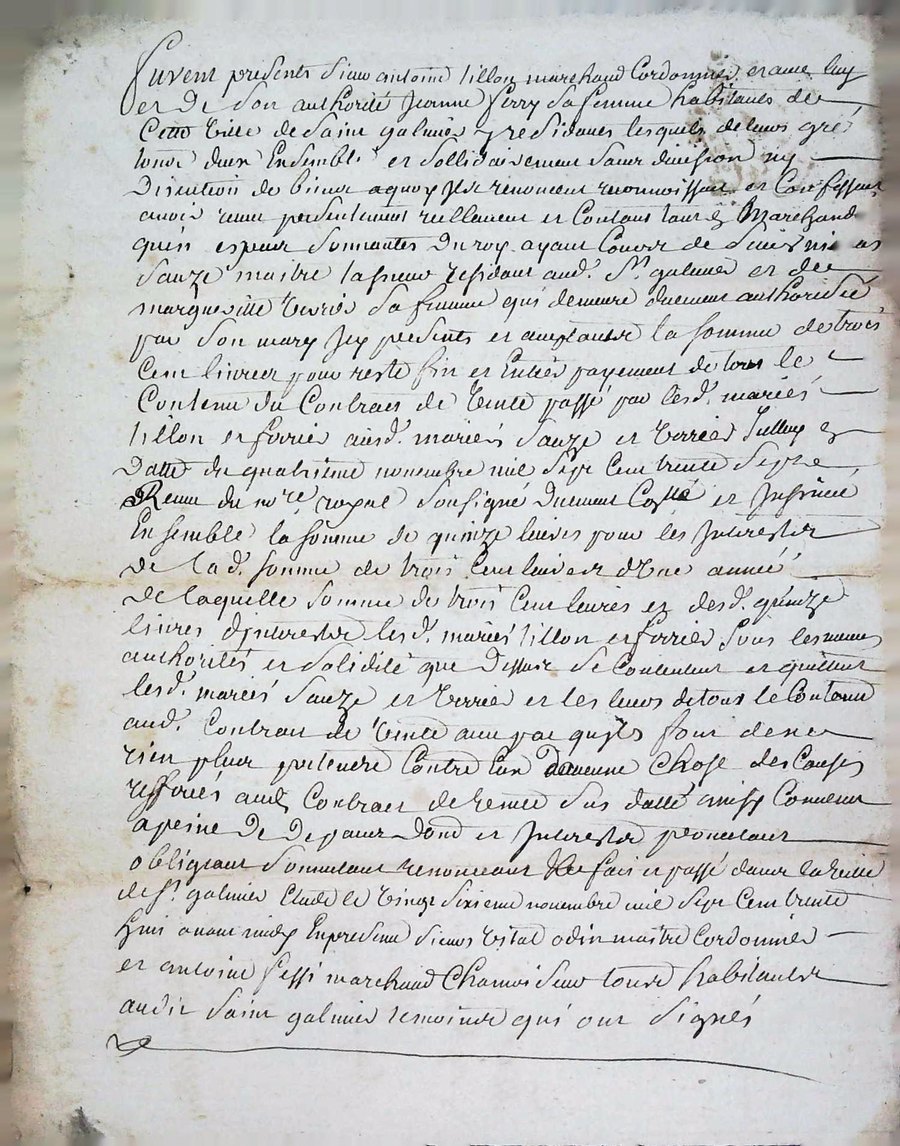 furent presents Sieur antoine tillon marchand Cordonnier et avec luy
et de Son authorité Jeanne ferry Sa femme habitants de
Cette Ville de Saint galmier y residants lesquels de leurs gré
tous deux Ensemble et sollidairement Sans division ny
Discution de biens a quoy Ils renoncent reconnoissent et Confessent
avoir receu presentement reellement et Contant
en especes Sonnantes Du roy ayant Cours de Sieur
Sauze maitre residant aud. St. galmier et de
margueritte Verrié Sa femme qui demeure duement authorisée
par Son mary Icy presents et acceptants la somme de trois
Cent livres pour reste fin et Entier payement de tous le
Contenu du Contract de Vente passé par lesd. mariés
tillon et ferrier ausd. mariés Sauze et Verrier
Datte du quatrieme novembre mil Sept Cent trente Sept
Receu du nore royal Soussigné Duement Collé et Insinué
Ensemble la somme de quinze livres pour les Interests
de lad. somme de trois Cent livres d'Une année
de laquelle Somme de trois Cent livres et desd. quinze
livres d'Interests lesd. mariés tillon et ferrier Sous les memes
authorités et solidité que Dessus Se Contentent et quittent
lesd. mariés Sauze et Verrié et les leurs de tous le Contenu
aud. Contract de Vente avec pac qu'ils font de ne
rien plus pretendre Contre Eux D'aucune Chose des Causes
refferés aud. Contract de Vente Sus datté ainsy Convenu
a peine De Depans Dond et Interests promettant
obligeant Soumettant renonceant fait et passé dans la Ville
de St. galmier Etude le Vingt Sixieme novembre mil Sept Cent trente
huit avant midy En presence Sieurs Vital odin maitre Cordonnier
et antoine marchand Chamoiseur tous habitants
audit Saint galmier temoins qui ont Signés